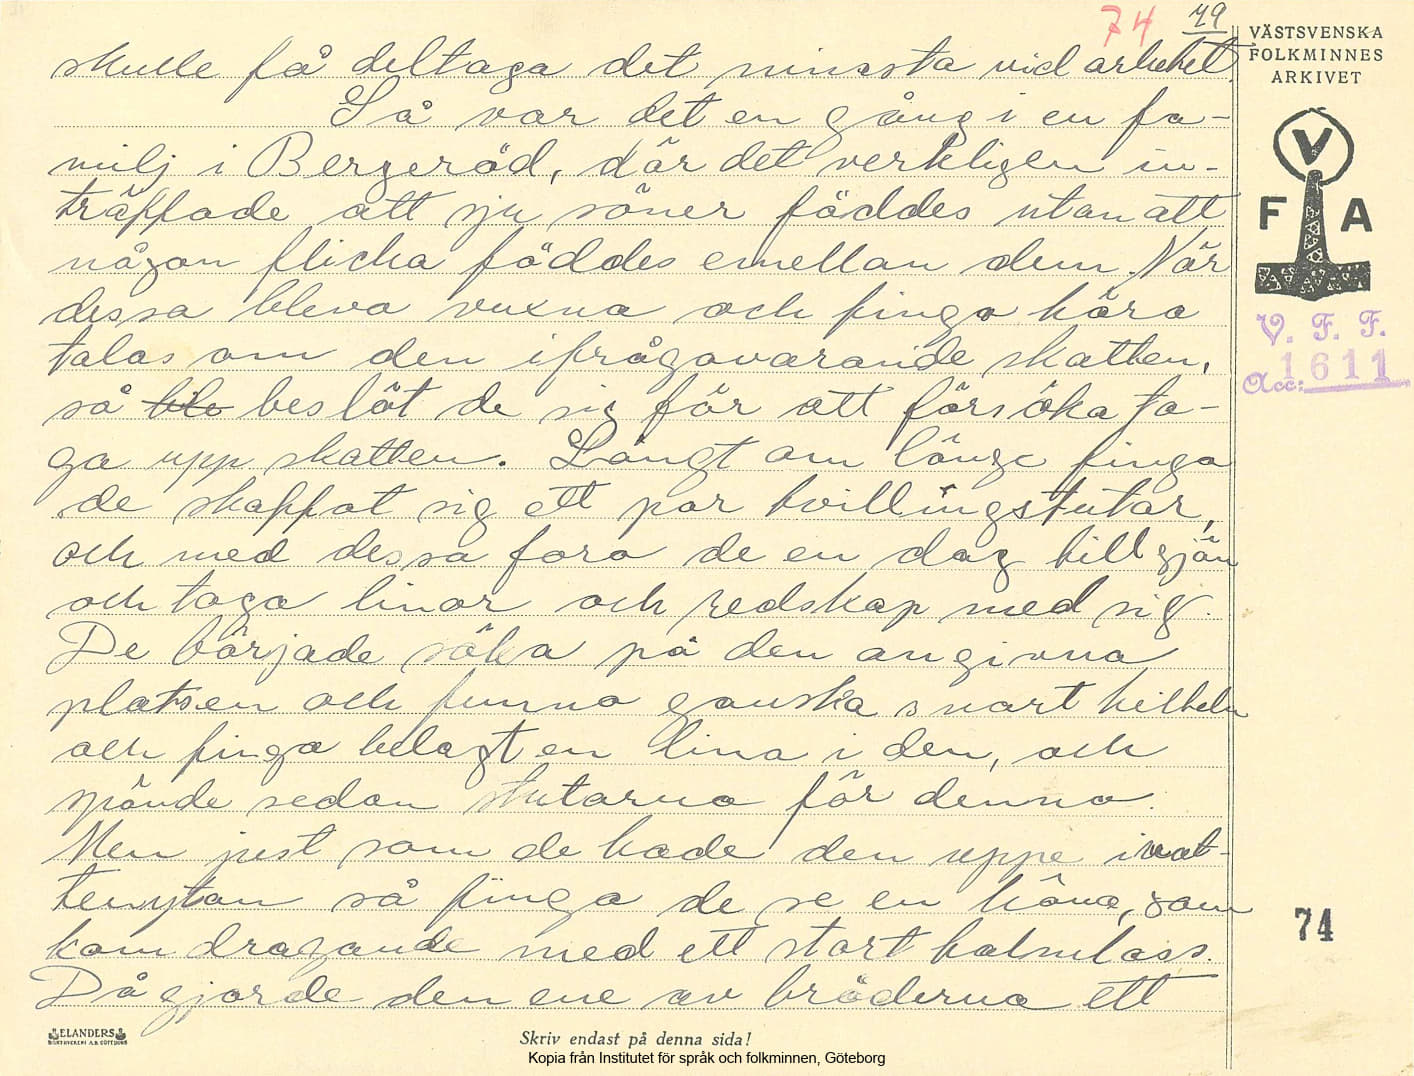 74 49
VÄSTSVENSKA
FOLKMINNES
ARKIVET
skulle få deltaga det minsta vid arbetet.
Så var det en gång i en fa-
milj i Bergeröd, där det verkligen in-
träffade att sju söner föddes utan att
någon flicka föddes emellan dem. När
dessa bleva vuxna och fingo höra
talas om den ifrågavarande skatten,
så blo beslöt de sig för att försöka ta-
ga upp skatten. Långt om länge fingo
de skaffat sig ett par tvillingstutar,
och med dessa foro de en dag till sjön
och togo linor och redskap med sig.
De började söka på den angivna
platsen och funno ganska snart kitteln
och fingo belagt en lina i den, och
spände sedan stutarna för denna.
Men just som de hade den uppe i vat-
tenytan så fingo de se en höna, som
kom dragande med ett stort halmlass.
Då gjorde den ene av bröderna ett
V
F A
V. F. F.
Acc: 1611
74
ELANDERS
Skriv endast på denna sida!
Kopia från Institutet för språk och folkminnen, Göteborg